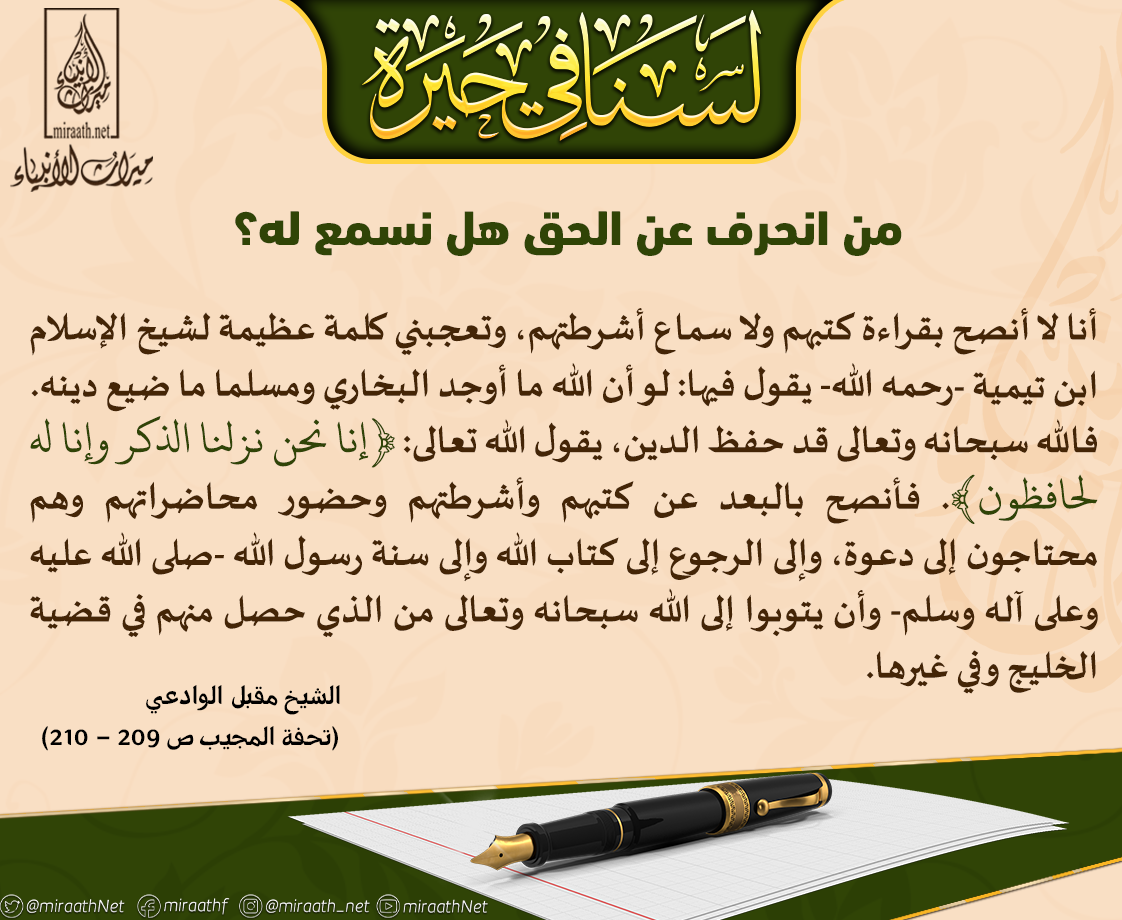 لسنا في حيرة
ميراث الأنبياء
miraath.net
ميراث الأنبياء
من انحرف عن الحق هل نسمع له؟
أنا لا أنصح بقراءة كتبهم ولا سماع أشرطتهم، وتعجبني كلمة عظيمة لشيخ الإسلام
ابن تيمية -رحمه الله- يقول فيها: لو أن الله ما أوجد البخاري ومسلما ما ضيع دينه.
فالله سبحانه وتعالى قد حفظ الدين، يقول الله تعالى: ﴿إنا نحن نزلنا الذكر وإنا له
لحافظون﴾. فأنصح بالبعد عن كتبهم وأشرطتهم وحضور محاضراتهم وهم
محتاجون إلى دعوة، وإلى الرجوع إلى كتاب الله وإلى سنة رسول الله -صلى الله عليه
وعلى آله وسلم- وأن يتوبوا إلى الله سبحانه وتعالى من الذي حصل منهم في قضية
الخليج وفي غيرها.
الشيخ مقبل الوادعي
(تحفة المجيب ص 209 – 210)
@miraathNet miraathf @miraath_net miraathNet